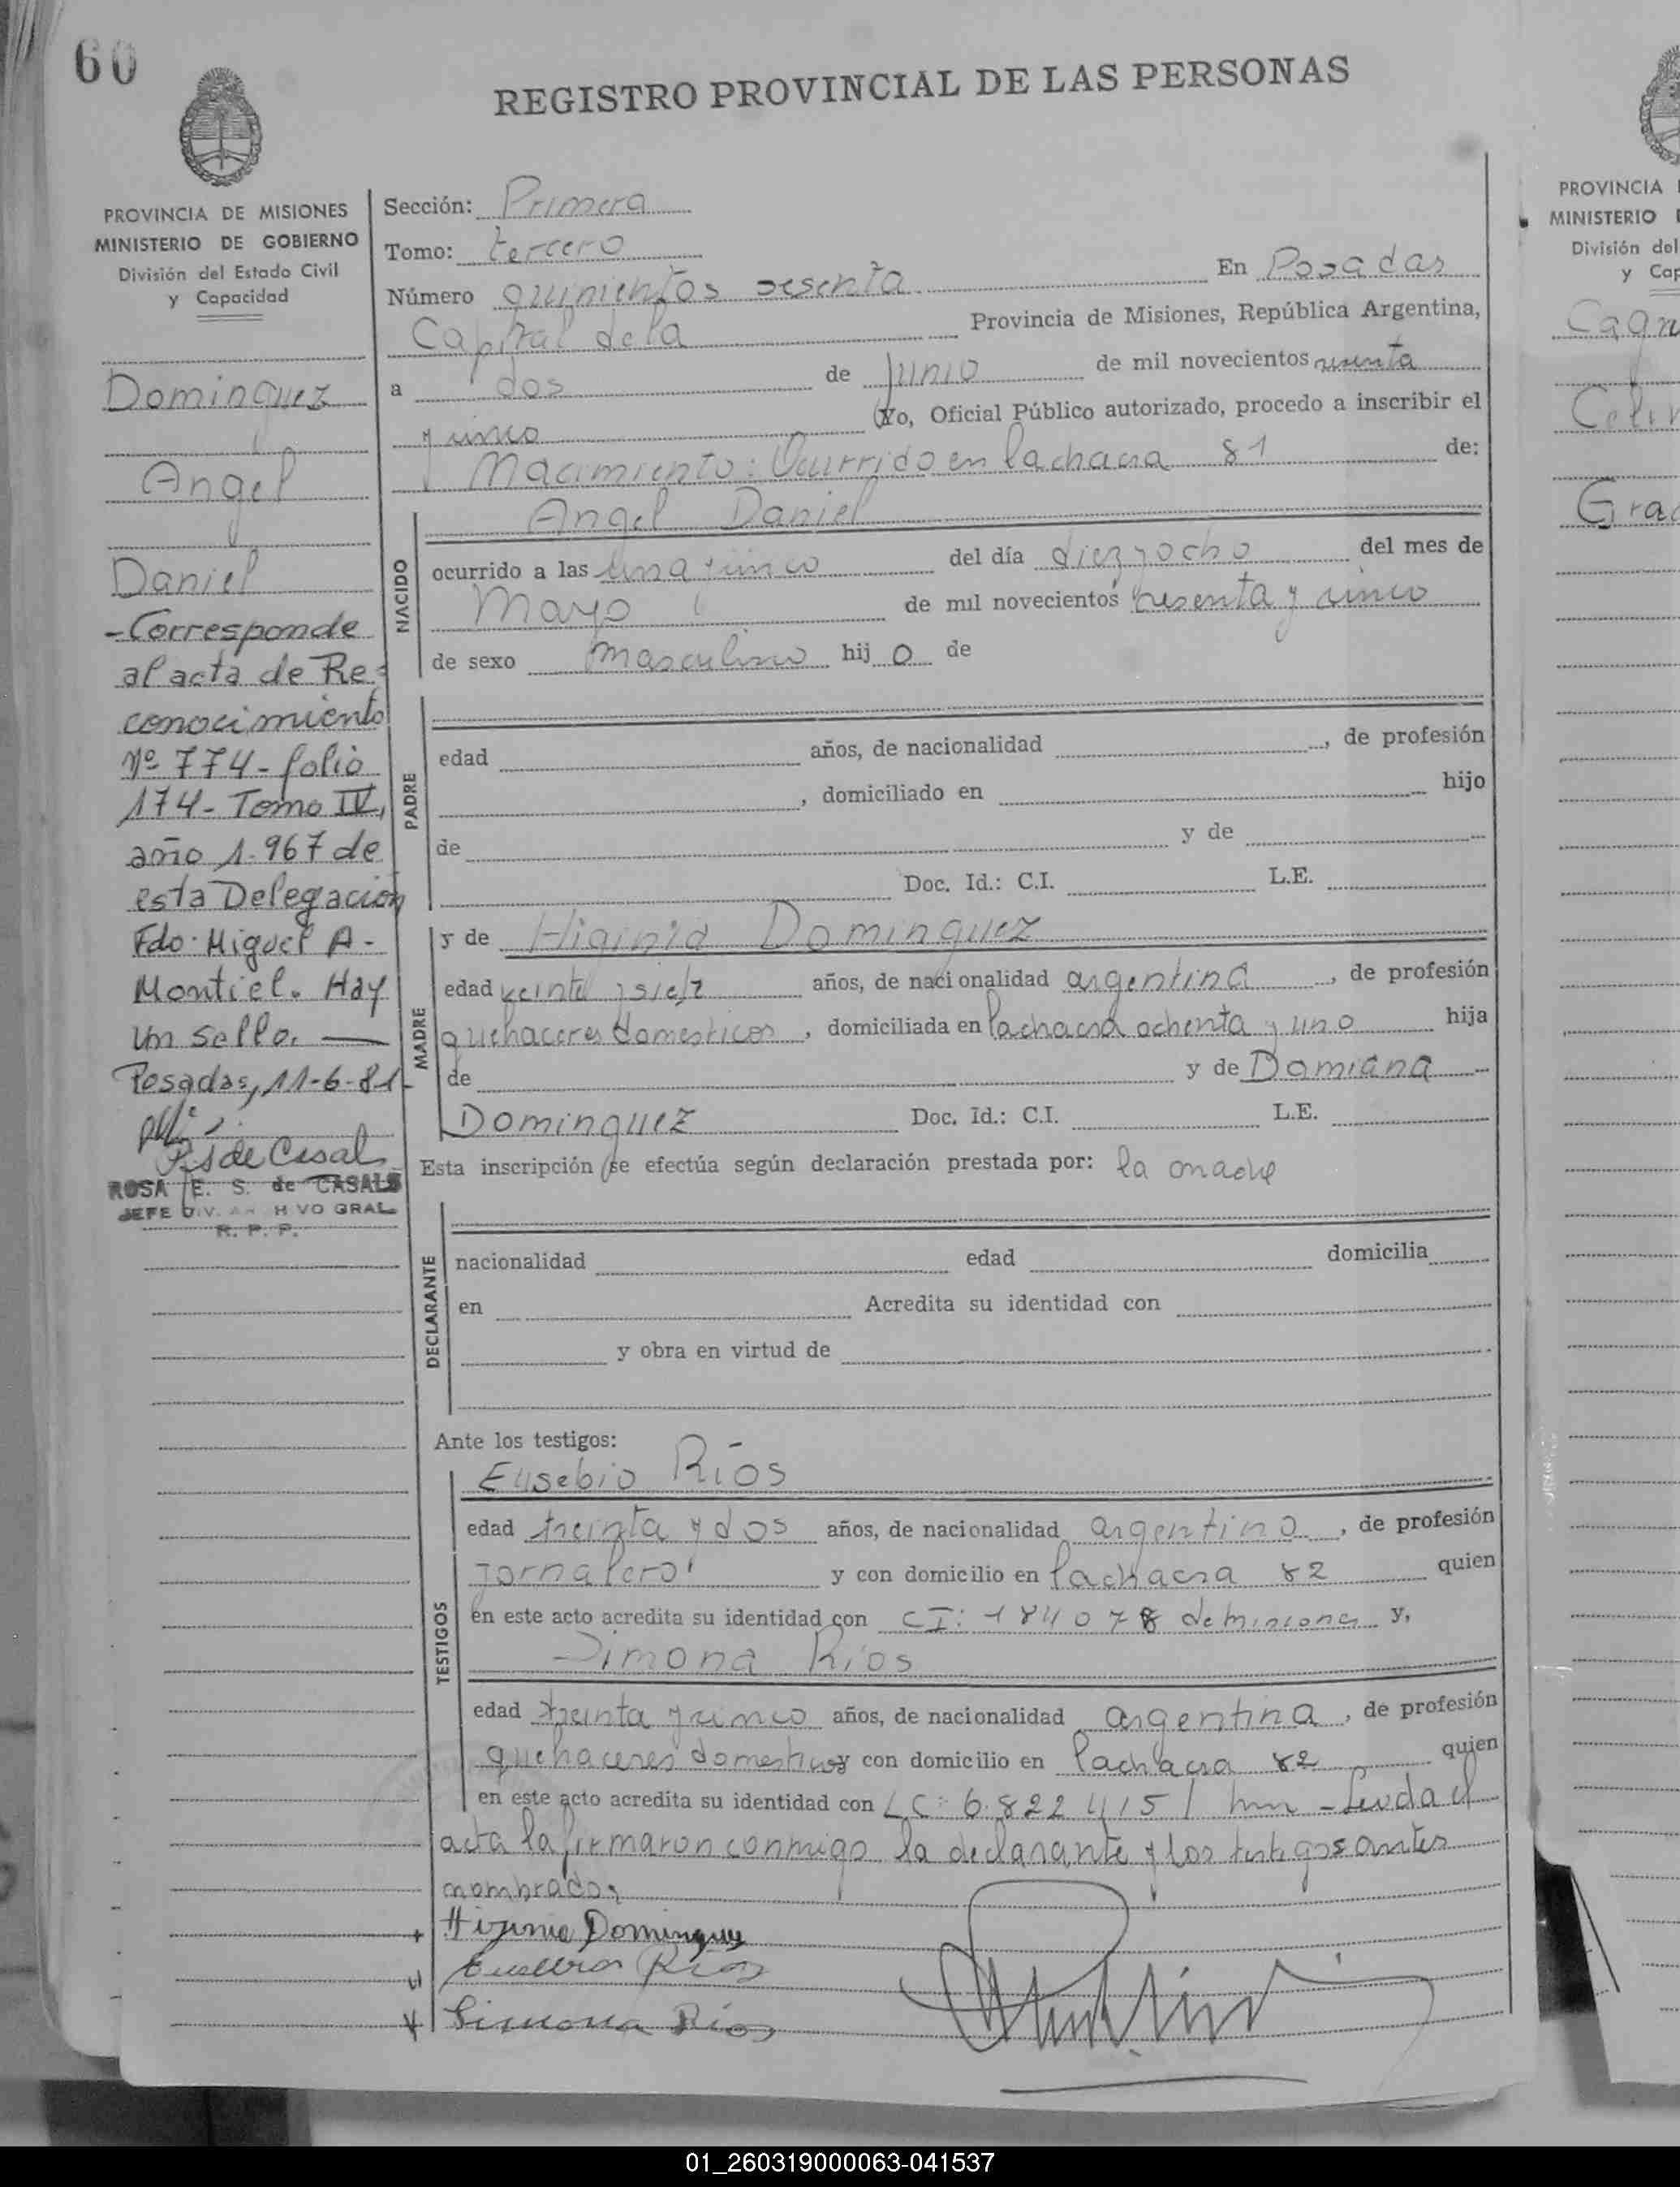 60
REGISTRO PROVINCIAL DE LAS PERSONAS
PROVINCIA DE MISIONES
MINISTERIO DE GOBIERNO
División del Estado Civil
y Capacidad
Dominguez
Angel
Daniel
-Corresponde
al acta de Re-
conocimiento
Nº 774- folio
174- Tomo IV,
año 1.967 de
esta Delegación
Fdo: Miguel A-
Montiel. Hay
un sello. —
Posadas, 11-6-81-
de Casal
ROSA E. S. de CASALS
JEFE DIV. ARCHIVO GRAL.
R. P. P.
Sección: Primera
Tomo: tercero
Número quinientos sesenta En Posadas
Capital de la Provincia de Misiones, República Argentina,
a dos de Junio de mil novecientos sesenta
y cinco Yo, Oficial Público autorizado, procedo a inscribir el
Nacimiento: Ocurrido en la chacra 81 de:
NACIDO
Angel Daniel
ocurrido a las una y cinco del día diez y ocho del mes de
Mayo de mil novecientos sesenta y cinco
de sexo masculino hij o de
PADRE
edad años, de nacionalidad , de profesión
, domiciliado en hijo
de y de
Doc. Id.: C.I. L.E.
MADRE
y de Higinia Dominguez
edad veinte y siete años, de nacionalidad argentina , de profesión
quehaceres domesticos , domiciliada en la chacra ochenta y uno hija
de y de Damiana
Dominguez Doc. Id.: C.I. L.E.
Esta inscripción se efectúa según declaración prestada por: la madre
DECLARANTE
nacionalidad edad domicilia
en Acredita su identidad con
y obra en virtud de
Ante los testigos:
TESTIGOS
Eusebio Ríos
edad treinta y dos años, de nacionalidad argentino , de profesión
jornalero y con domicilio en la chacra 82 quien
en este acto acredita su identidad con CI: 184078 de misiones y,
Simona Ríos
edad treinta y cinco años, de nacionalidad argentina , de profesión
quehaceres domesticos y con domicilio en la chacra 82 quien
en este acto acredita su identidad con LC: 6.822.415 - Leida el
acta la firmaron conmigo la declarante y los testigos antes
nombrados
Higinia Dominguez
Eusebio Rios
Simona Ríos
PROVINCIA
MINISTERIO
División del
y Cap
01_260319000063-041537